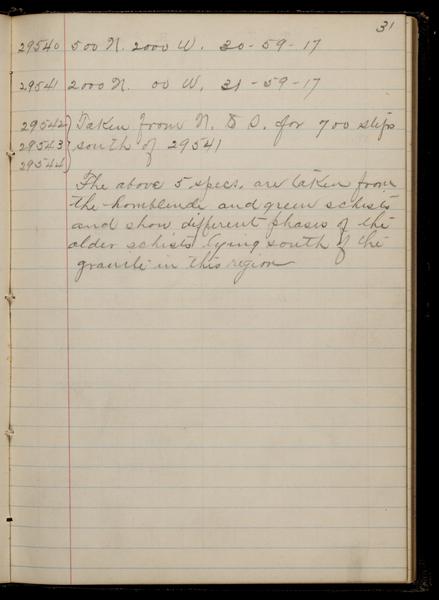 31
29540 500 N. 2000 W. 30-59-17
29541 2000 N. 00 W. 31-59-17
29542) Taken from N. & S. for 700 steps
29543} south of 29541
29544)
The above 5 specs. are taken from
the hornblende and green schists
and show different phases of the
older schists lying south of the
granite in this region